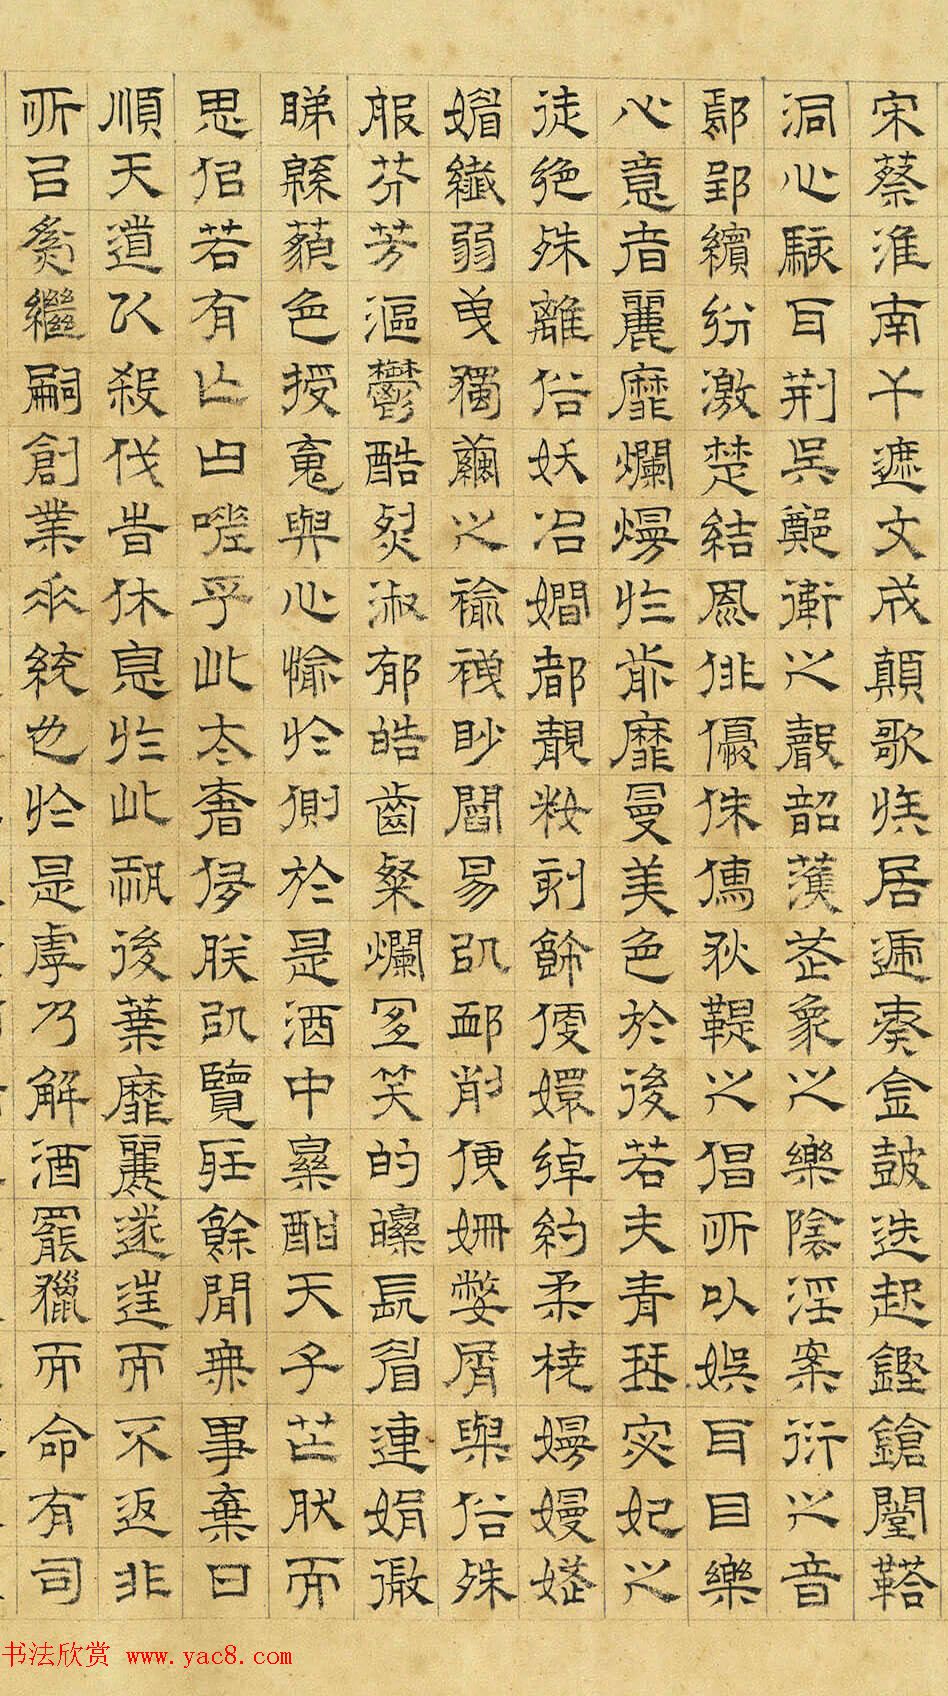 宋蔡淮南干遮文成顛歌族居遞奏金鼓迭起鏗鎗闛鞈
洞心駭耳荊吳鄭衛之聲韶濩武象之樂陰淫案衍之音
鄢郢繽紛激楚結風俳優侏儒狄鞮之倡所以娛耳目樂
心意者麗靡爛熳於前靡曼美色於後若夫青琴宓妃之
徒絕殊離俗妖冶嫺都靚粧刻飾便嬛綽約柔橈嫚嫚嫵
媚纖弱曳獨繭之褕襪眇閻易以卹削便姍嫳屑與俗殊
服芬芳漚鬱酷烈淑郁皓齒粲爛宜笑的皪長眉連娟微
睇緜藐色授䰟與心愉於側於是酒中樂酣天子芒然而
思似若有亡曰嗟乎此太奢侈朕以覽聽餘閒無事棄日
順天道以殺伐時休息於此恐後葉靡麗遂往而不返非
所以為繼嗣創業垂統也於是虖乃解酒罷獵而命有司
书法欣赏 www.yac8.com